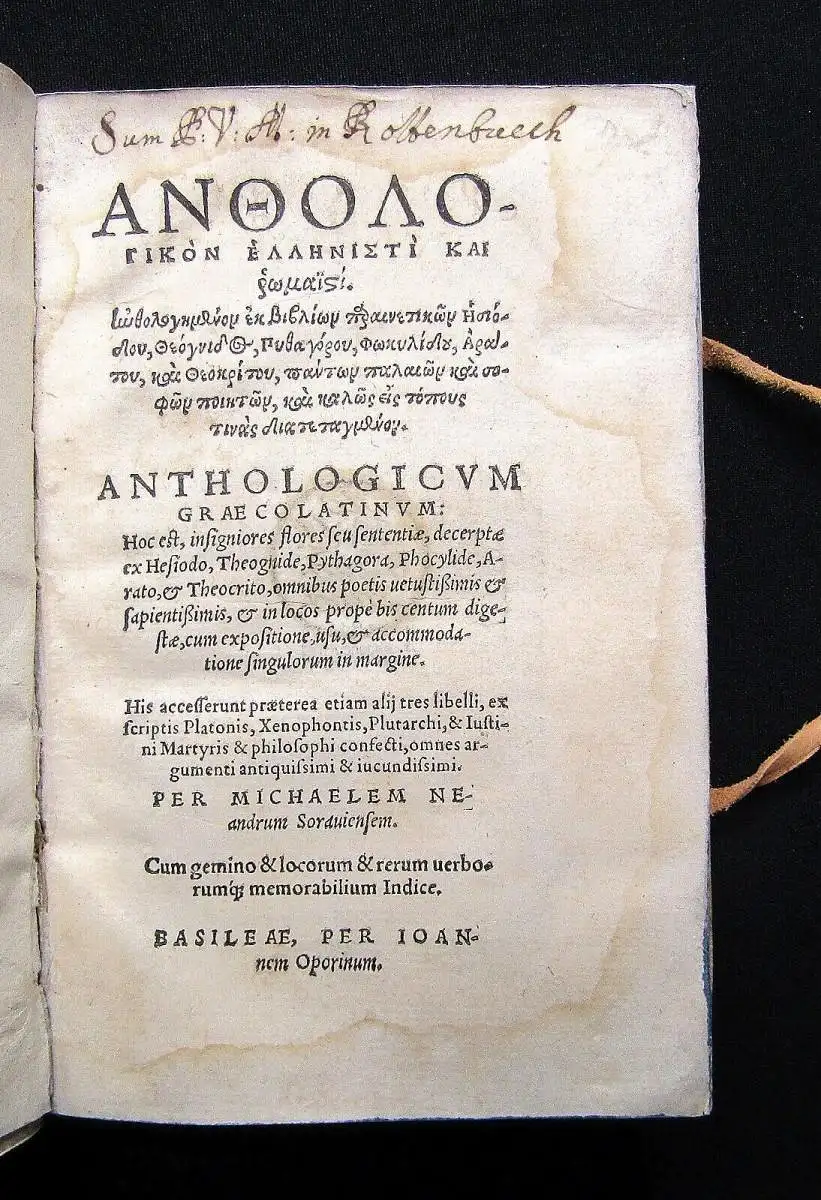 Sum P: V: A: in Rottenbuech
ΑΝΘΟΛΟ-
ΓΙΚῸΝ ἙΛΛΗΝΙΣΤῚ ΚΑΙ
ῥωμαϊϛί.
ἠνθολογημένον ἐκ βιβλίων παραινετικῶν Ἡσιό-
δου, Θεόγνιδος, Πυθαγόρου, Φωκυλίδου, Ἀρά-
του, καὶ Θεοκρίτου, πάντων παλαιῶν καὶ σο-
φῶν ποιητῶν, καὶ καλῶς εἰς τόπους
τινὰς διατεταγμένον.
ANTHOLOGICVM
GRAECOLATINVM:
Hoc est, insigniores flores seu sententiæ, decerptæ
ex Hesiodo, Theognide, Pythagora, Phocylide, A-
rato, & Theocrito, omnibus poetis uetustißimis &
sapientißimis, & in locos propè bis centum dige-
stæ, cum expositione, usu, & accommoda-
tione singulorum in margine.
His accesserunt præterea etiam alij tres libelli, ex
scriptis Platonis, Xenophontis, Plutarchi, & Iusti-
ni Martyris & philosophi confecti, omnes ar-
gumenti antiquissimi & iucundissimi.
PER MICHAELEM NE-
andrum Sorauiensem.
Cum gemino & locorum & rerum uerbo-
rumq́; memorabilium Indice.
BASILEAE, PER IOAN-
nem Oporinum.